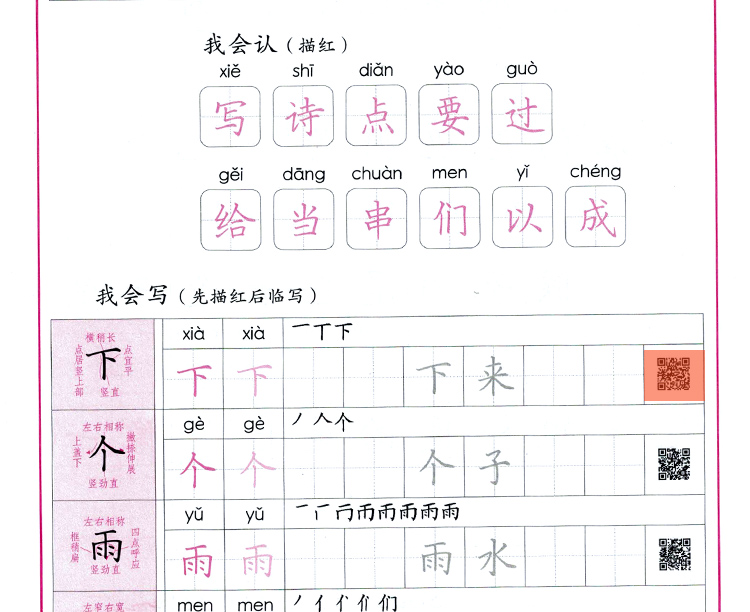 我会认（描红）
xiě shī diǎn yào guò
写 诗 点 要 过
gěi dāng chuàn men yǐ chéng
给 当 串 们 以 成
我会写（先描红后临写）
横稍长
点居竖上部
下
点宜平
竖直
xià xià 一丅下
下 下 下 来
左右相称
上盖下
个
撇捺伸展
竖劲直
gè gè 丿人个
个 个 个 子
左右相称
框稍扁
雨
四点呼应
竖劲直
yǔ yǔ
雨 雨 雨 水
左窄右宽
men men